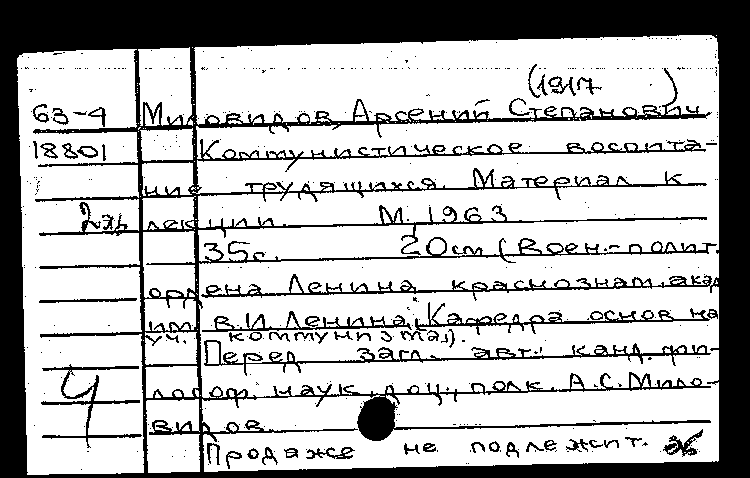 (1917 )
63-4 Миловидов, Арсений Степанович
18801 Коммунистическое воспита-
ние трудящихся. Материал к
2 экз лекции. М, 1963.
35с. 20см (Воен.-полит.
ордена Ленина краснознам. акад
им. В.И. Ленина. Кафедра основ на
уч. коммунизма).
Перед загл. авт.: канд. фи-
лософ. наук, доц., полк. А.С. Мило-
видов.
Продаже не подлежит.